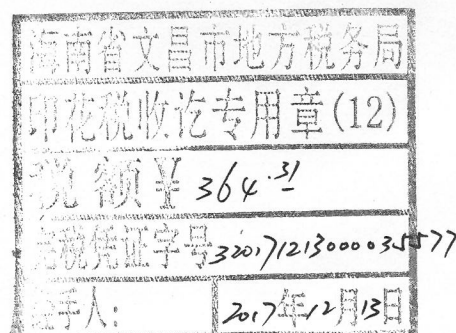 海南省文昌市地方税务局
印花税收讫专用章(12)
税额¥ 364.31
完税凭证字号320171213000035577
经手人: 2017年12月13日